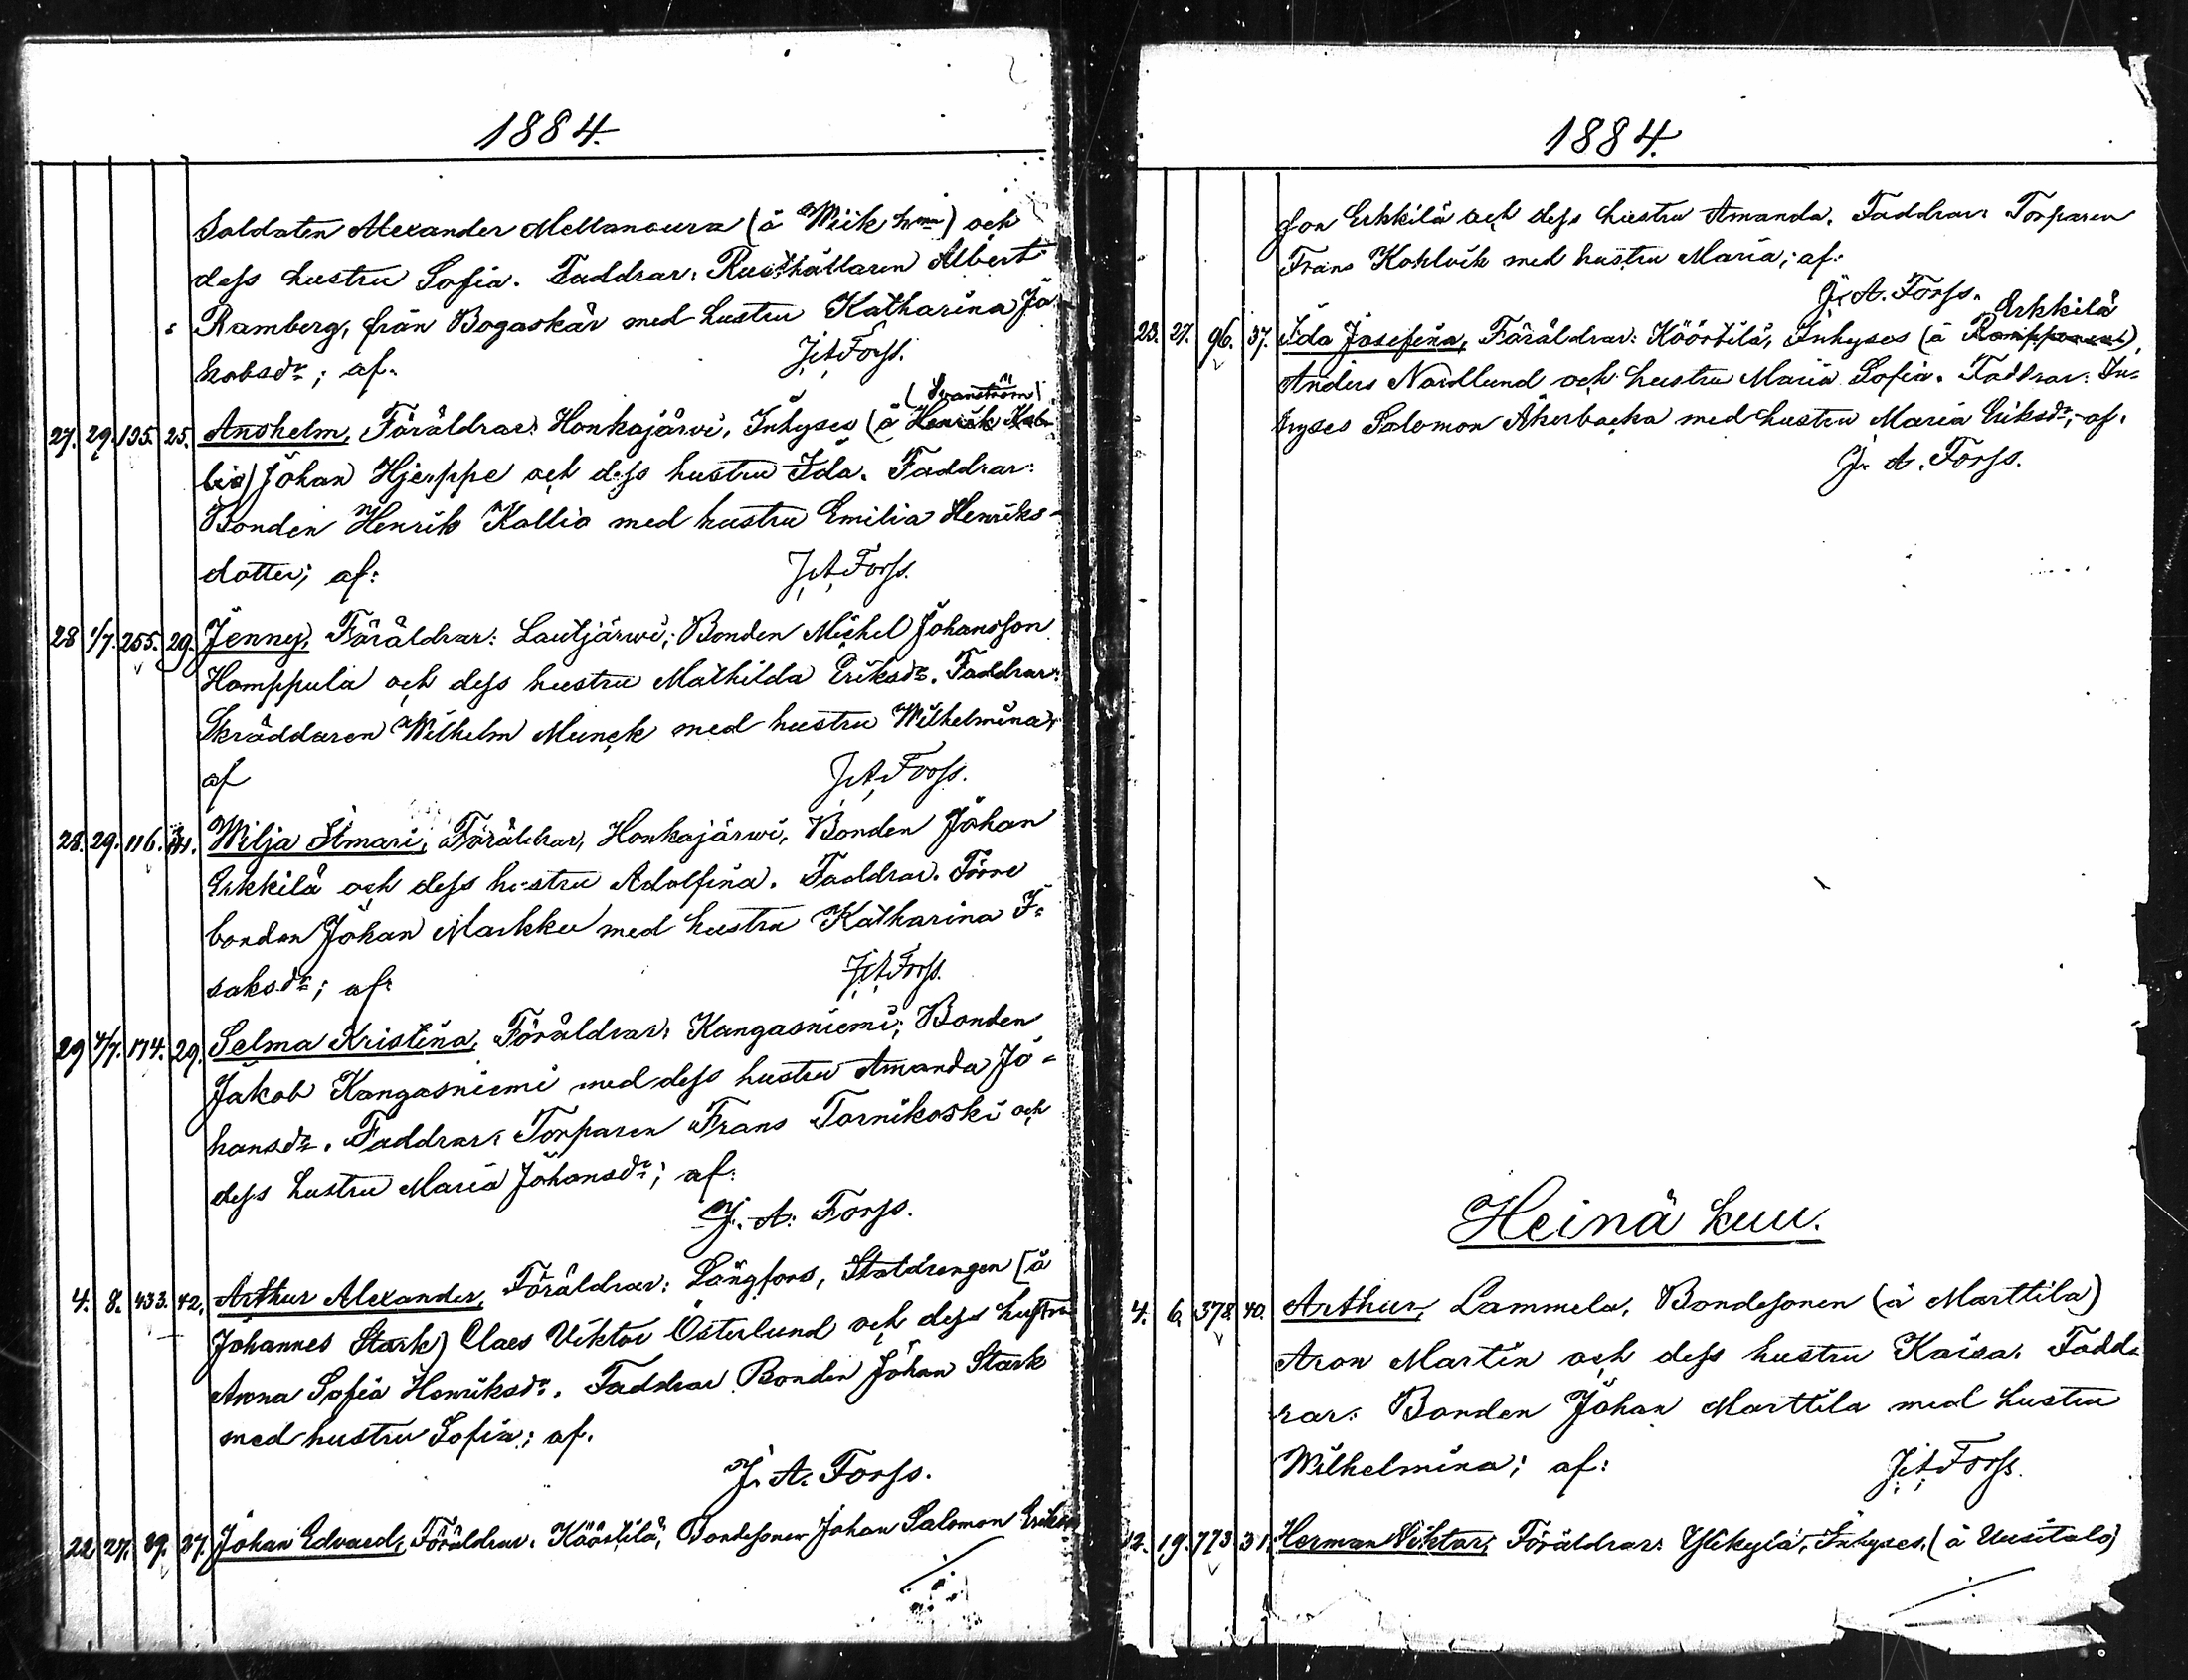 1884.
Soldaten Alexander Mellanoura (å Wiik hmn) och
dess hustru Sofia. Faddrar: Rusthållaren Albert
Ramberg, från Bogaskär med hustru Katharina Ja
kobsdr; af: J. A. Forss.
(Granström)
27. 29. 135. 25. Anshelm, Föräldrar: Honkajärvi, Inhyses (å Henrik Kal
lio) Johan Hjerppe och dess hustru Ida. Faddrar:
Bonden Henrik Kallio med hustru Emilia Henriks-
dotter; af: J. A. Forss.
28 1/7. 255. 29. Jenny, Föräldrar: Lautjärwi; Bonden Michel Johansson
Homppula och dess hustru Mathilda Eriksdr. Faddrar:
Skräddaren Wilhelm Munck med hustru Wilhelmina,
af J. A. Forss.
28. 29. 116. Wilja Ilmari, Föräldrar, Honkajärwi, Bonden Johan
Erkkilä och dess hustru Adolfina. Faddrar. Förre
bonden Johan Markku med hustru Katharina I-
saksdr; af: J. A. Forss.
29 4/7. 174. 29. Selma Kristina, Föräldrar: Kangasniemi; Bonden
Jakob Kangasniemi med dess hustru Amanda Jo-
hansdr. Faddrar: Torparen Frans Tornikoski och
dess hustru Maria Johansdr; af:
J. A. Forss.
4. 8. 433. 42. Arthur Alexander, Föräldrar: Långfors, Statdrengen (å
Johannes Stark) Claes Viktor Österlund och dess hustru
Anna Sofia Henriksdr. Faddrar Bonden Johan Stark
med hustru Sofia; af.
J. A. Forss.
22 27. 89. 37. Johan Edvard, Föräldrar. Köörtilä, Bondesonen Johan Salomon Eriks
1884.
son Erkkilä och dess hustru Amanda. Faddrar: Torparen
Frans Kohlvik med hustru Maria; af:
J. A. Forss.
Erkkilä
23. 27. 96. 37. Ida Josefina, Föräldrar: Köörtilä, Inhyses (å
Anders Nordlund och hustru Maria Sofia. Faddrar: In-
hyses Salomon Åkerbacka med hustru Maria Eriksdr; af.
J. A. Forss.
Heinä kuu.
4. 6. 378. 40. Arthur, Lammela, Bondesonen (å Marttila)
Aron Martin och dess hustru Kaisa. Fadd-
rar: Bonden Johan Marttila med hustru
Wilhelmina; af: J. A. Forss.
12. 19. 773 31. Herman Viktor, Föräldrar: Ylikylä, Inhyses, (å Uusitalo)